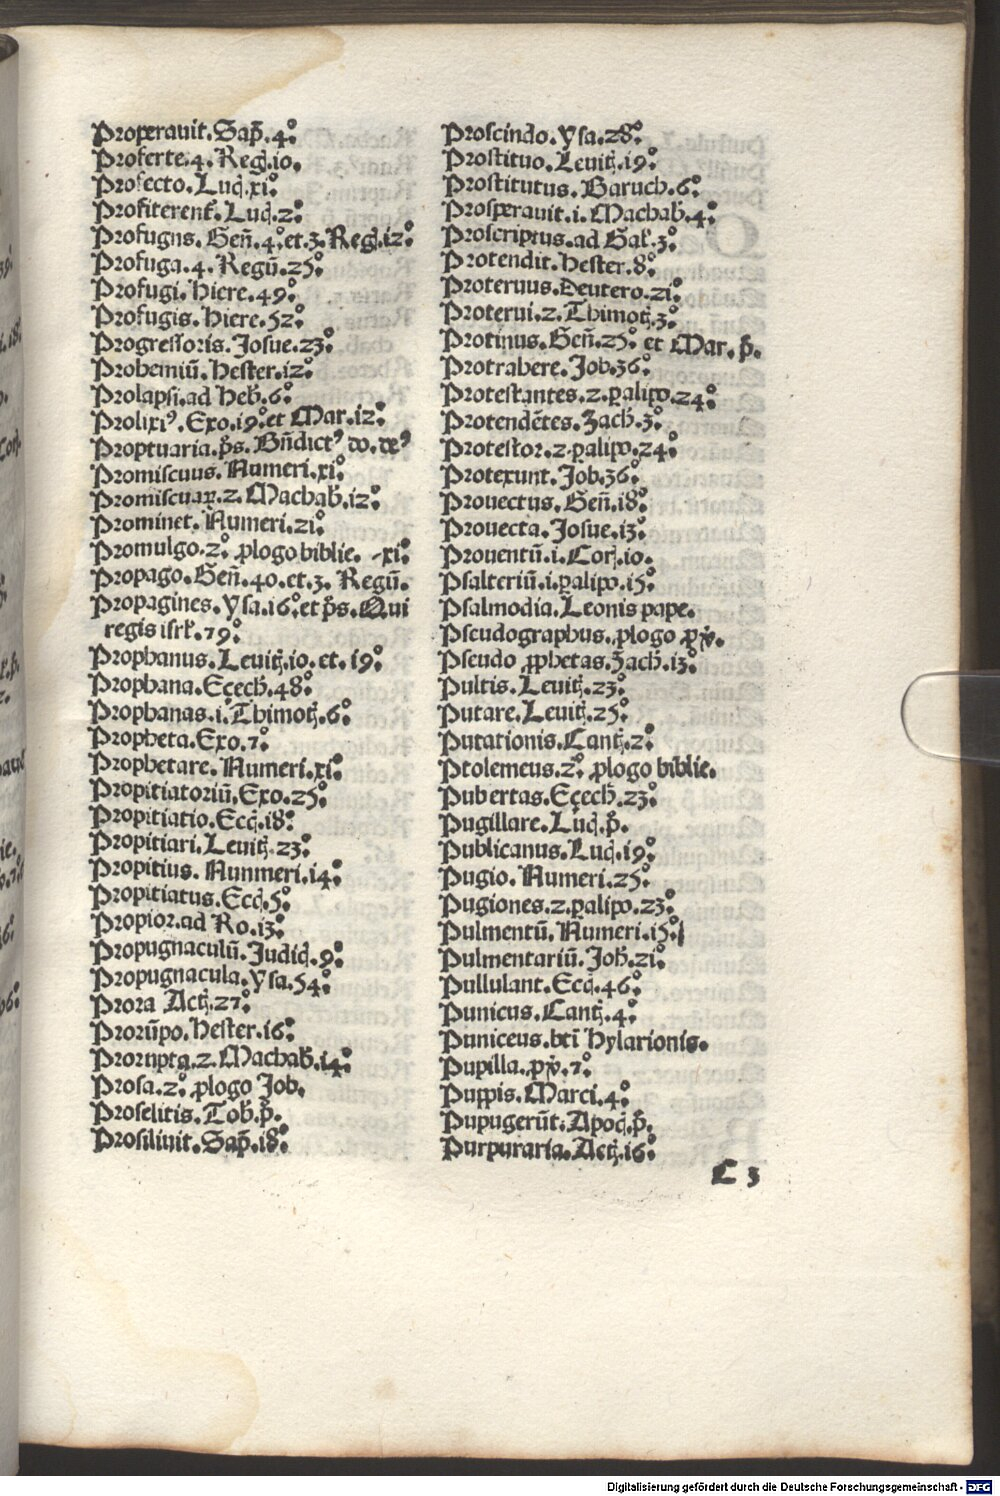 Properauit. Sap̄. 4°.
Proferte. 4. Reg. io.
Profecto. Luc̄. xi°.
Profiterent̄. Luc̄. 2°.
Profugus. Gen̄. 4°. et. 3. Reg. i2°.
Profuga. 4. Regū. 25°.
Profugi. Hiere. 49°.
Profugis. Hiere. 52°.
Progressoris. Josue. 23°.
Prohemiū. Hester. i2°.
Prolapsi. ad Heb̄. 6°.
Prolixiꝰ. Exo. i9°. et Mar. i2°.
Proptuaria. p̄s. Bn̄dictꝰ
Promiscuus. Numeri. xi°.
Promiscuaꝝ. 2. Machab̄. i2°.
Prominet. Numeri. 2i°.
Promulgo. 2°. ꝓlogo biblie. xi°.
Propago. Gen̄. 40. et. 3. Regū.
Propagines. Ysa. i6°. et p̄s. Qui
regis isrl̄. 79°.
Prophanus. Leuit̄. io. et. i9°.
Prophana. Eçech̄. 48°.
Prophanas. i. Thimot̄. 6°.
Propheta. Exo. 7°.
Prophetare. Numeri. xi°.
Propitiatoriū. Exo. 25°.
Propitiatio. Ecc̄. i8°.
Propitiari. Leuit̄. 23°.
Propitius. Nunmeri. i4°.
Propitiatus. Ecc̄. 5°.
Propior. ad Ro. i3°.
Propugnaculū. Judic̄. 9°.
Propugnacula. Ysa. 54°.
Prora Act̄. 27°.
Prorūpo. Hester. i6°.
Prorupta. 2. Machab̄. i4°.
Prosa. 2°. ꝓlogo Job.
Proselitis. Tob̄. p̄.
Prosiliuit. Sap̄. i8°.
Proscindo. Ysa. 28°.
Prostituo. Leuit̄. i9°.
Prostitutus. Baruch. 6°.
Prosperauit. i. Machab̄. 4°.
Proscriptus. ad Gal̄. 3°.
Protendit. Hester. 8°.
Proteruus. Deutero. 2i°.
Proterui. 2. Thimot̄. 3°.
Protinus. Gen̄. 25°. et Mar. p̄.
Protrahere. Job. 36°.
Protestantes. 2. ꝑalipo. 24°.
Protendētes. Zach̄. 3°.
Protestor. 2. ꝑalipo. 24°.
Protexunt. Job. 36°.
Prouectus. Gen̄. i8°.
Prouecta. Josue. i3°.
Prouentū. i. Cor̄. io.
Psalteriū. i. ꝑalipo. i5°.
Psalmodia. Leonis pape.
Pseudographus. ꝓlogo
Pseudo ꝓphetas. Zach̄. i3°.
Pultis. Leuit̄. 23°.
Putare. Leuit̄. 25°.
Putationis. Cant̄. 2°.
Ptolemeus. 2°. ꝓlogo biblie.
Pubertas. Eçech̄. 23°.
Pugillare. Luc̄. p̄.
Publicanus. Luc̄. i9°.
Pugio. Numeri. 25°.
Pugiones. 2. ꝑalipo. 23°.
Pulmentū. Numeri. i5°.
Pulmentariū. Joh̄. 2i°.
Pullulant. Ecc̄. 46°.
Punicus. Cant̄. 4°.
Puniceus. bt̄i Hylarionis.
Pupilla. 7°.
Puppis. Marci. 4°.
Pupugerūt. Apoc̄. p̄.
Purpuraria. Act̄. i6°.
C 3
Digitalisierung gefördert durch die Deutsche Forschungsgemeinschaft - DFG